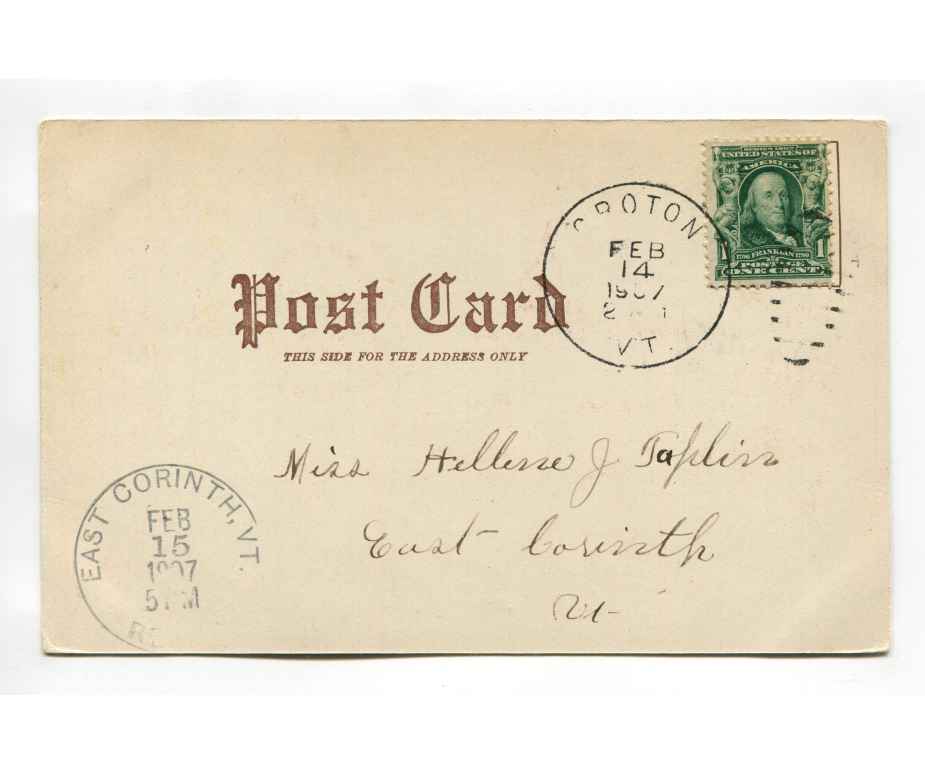 SERIES 1902
UNITED STATES OF
AMERICA
1 1
1706 FRANKLIN 1790
POSTAGE
ONE CENT
GROTON
FEB
14
1907
VT.
Post Card
THIS SIDE FOR THE ADDRESS ONLY
Miss Hellene J Taplin
East Corinth
Vt-
EAST CORINTH, VT.
FEB
15
1907
5 PM